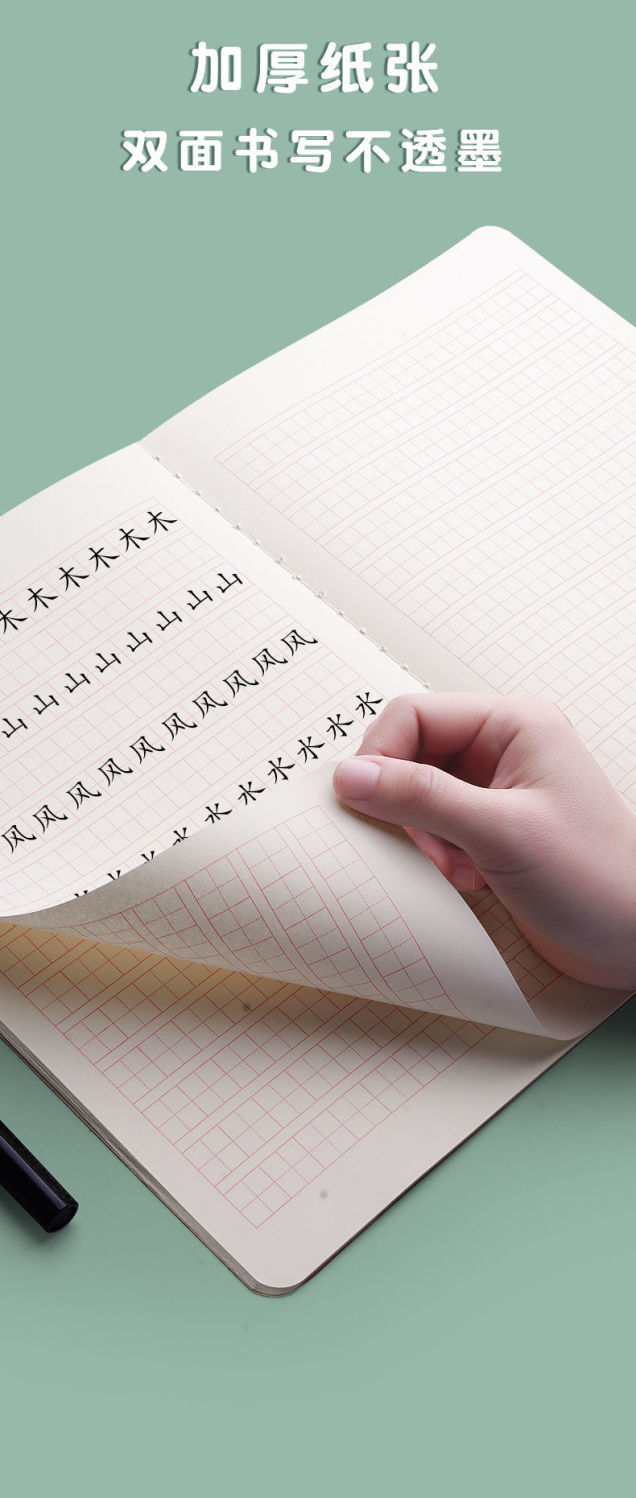 加厚纸张
双面书写不透墨
木木木木木木
山山山山山山山山
风风风风风风风风风风
水水水水水水